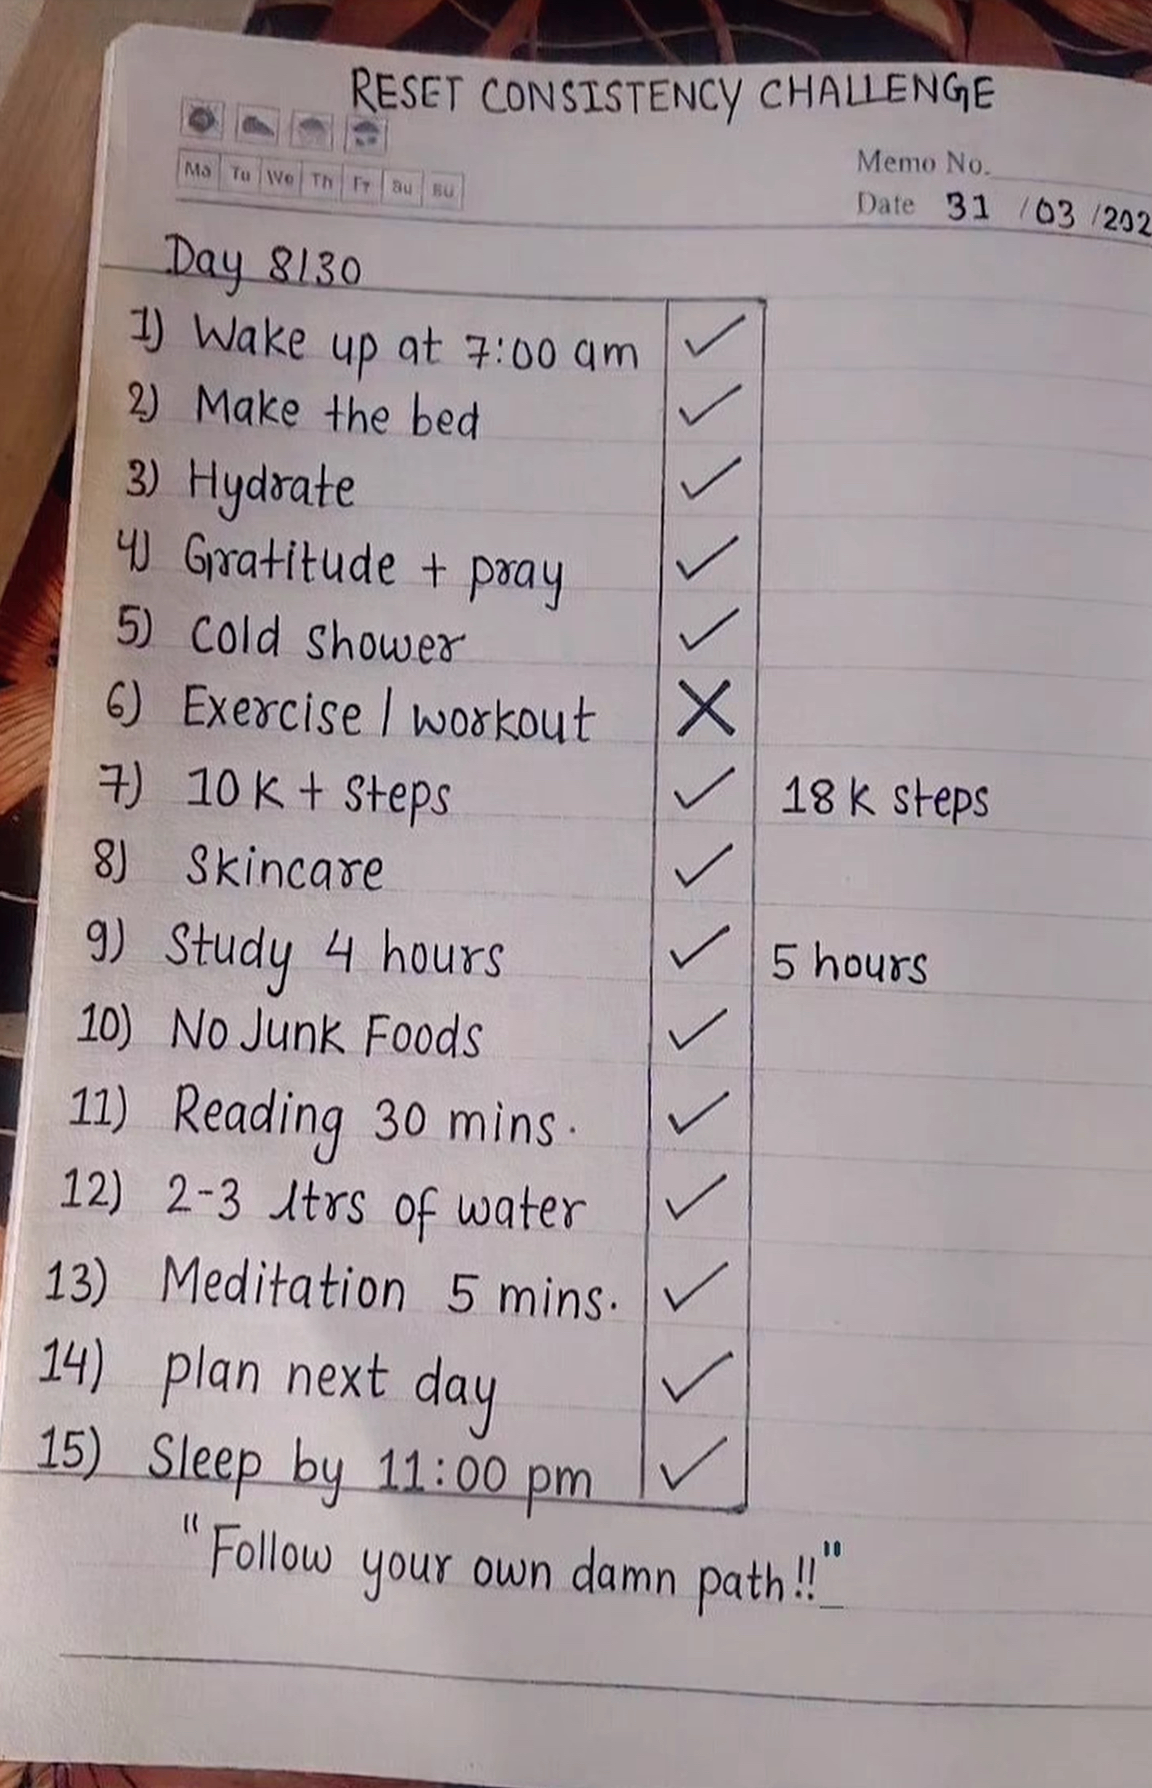 RESET CONSISTENCY CHALLENGE
Mo Tu We Th Fr Su Su
Memo No.
Date 31 /03 /202
Day 8/30
1) Wake up at 7:00 am ✓
2) Make the bed ✓
3) Hydrate ✓
4) Gratitude + pray ✓
5) Cold shower ✓
6) Exercise / workout X
7) 10 K + Steps ✓ 18 K steps
8) Skincare ✓
9) Study 4 hours ✓ 5 hours
10) No Junk Foods ✓
11) Reading 30 mins. ✓
12) 2-3 ltrs of water ✓
13) Meditation 5 mins. ✓
14) plan next day ✓
15) Sleep by 11:00 pm ✓
"Follow your own damn path!!"